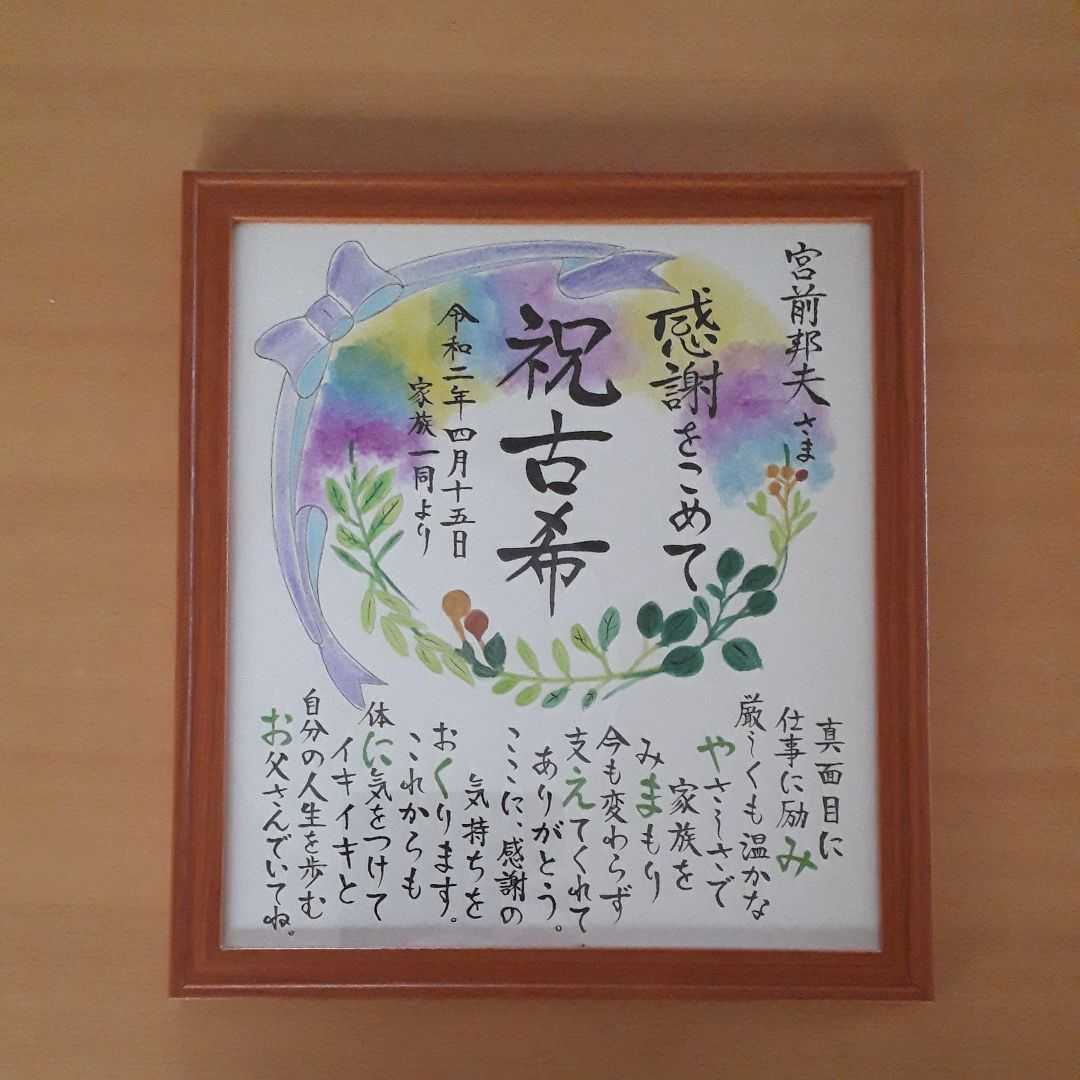 宮前邦夫さま
感謝をこめて
祝古希
令和二年四月十五日
家族一同より
真面目に
仕事に励み
厳しくも温かな
やさしさで
家族を
みまもり
今も変わらず
支えてくれて
ありがとう。
ここに、感謝の
気持ちを
おくります。
これからも
体に気をつけて
イキイキと
自分の人生を歩む
お父さんでいてね。